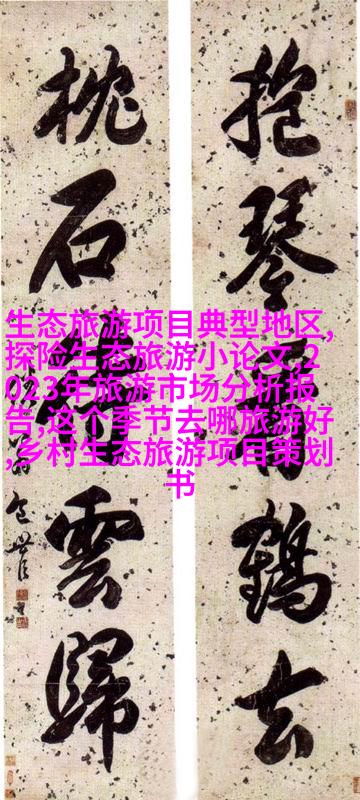 抱琴鶴去
枕石雲歸
生态旅游项目典型地区,
探险生态旅游小论文,2
023年旅游市场分析报
告,这个季节去哪旅游好
,乡村生态旅游项目策划
书